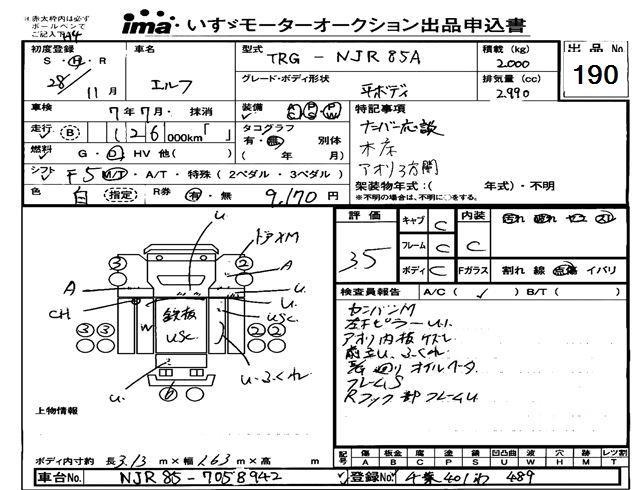 ※赤太枠内は必ず
ボールペンで
ご記入下さい
ima いすゞモーターオークション出品申込書
初度登録
S・H・R
28/11月
車名
エルフ
型式
TRG-NJR85A
積載(kg)
2.000
出品No
190
グレード・ボディ形状
平ボディ
排気量(cc)
2.990
車検
7年7月・抹消
装備
AC PS PW
特記事項
ナンバー応談
木床
アオリ3方開
走行 B 126000km「 」
タコグラフ
有・無 別体
( 年 月)
燃料 G・D HV 他( )
シフト F5 M/T・A/T・特殊(2ペダル・3ペダル)
架装物年式:( 年式)・不明
※不明の場合は、不明に○をする。
色 白 指定 R券 有・無 9,170円
評価
3.5
キャブ C
フレーム C
ボディ C
内装 C
汚れ 破れ コゲ スレ
Fガラス 割れ 線 点傷 イバリ
検査員報告 A/C( ✓ ) B/T( )
カンバンM
左下ピラーU.
アオリ内板ケズレ
フレームS
Rフック部フレームU
u.
ドアM
A
A
u.
u.
CH
W
鉄板
usc.
usc
u.
3
2
3 3
2 2
6
上物情報
ボディ内寸約 長3.13m×幅1.63m×高 m
記号 傷A 板金B 腐C 塗P 錆S 凹凸曲U 波W 穴H 跡M レツ割T
車台No. NJR85-7058942
登録No. 489